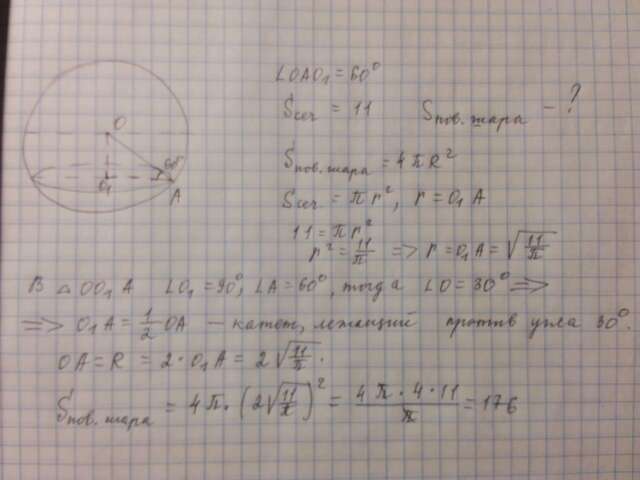 O
60°
O₁
A
∠OAO₁ = 60°
Sсеч = 11 Sпов. шара — ?
Sпов. шара = 4πR²
Sсеч = πr², r = O₁A
11 = πr²
r² = 11/π => r = O₁A = √(11/π)
В △OO₁A ∠O₁ = 90°, ∠A = 60°, тогда ∠O = 30° =>
=> O₁A = 1/2 OA — катет, лежащий против угла 30°.
OA = R = 2·O₁A = 2√(11/π).
Sпов. шара = 4π·(2√(11/π))² = (4π·4·11)/π = 176